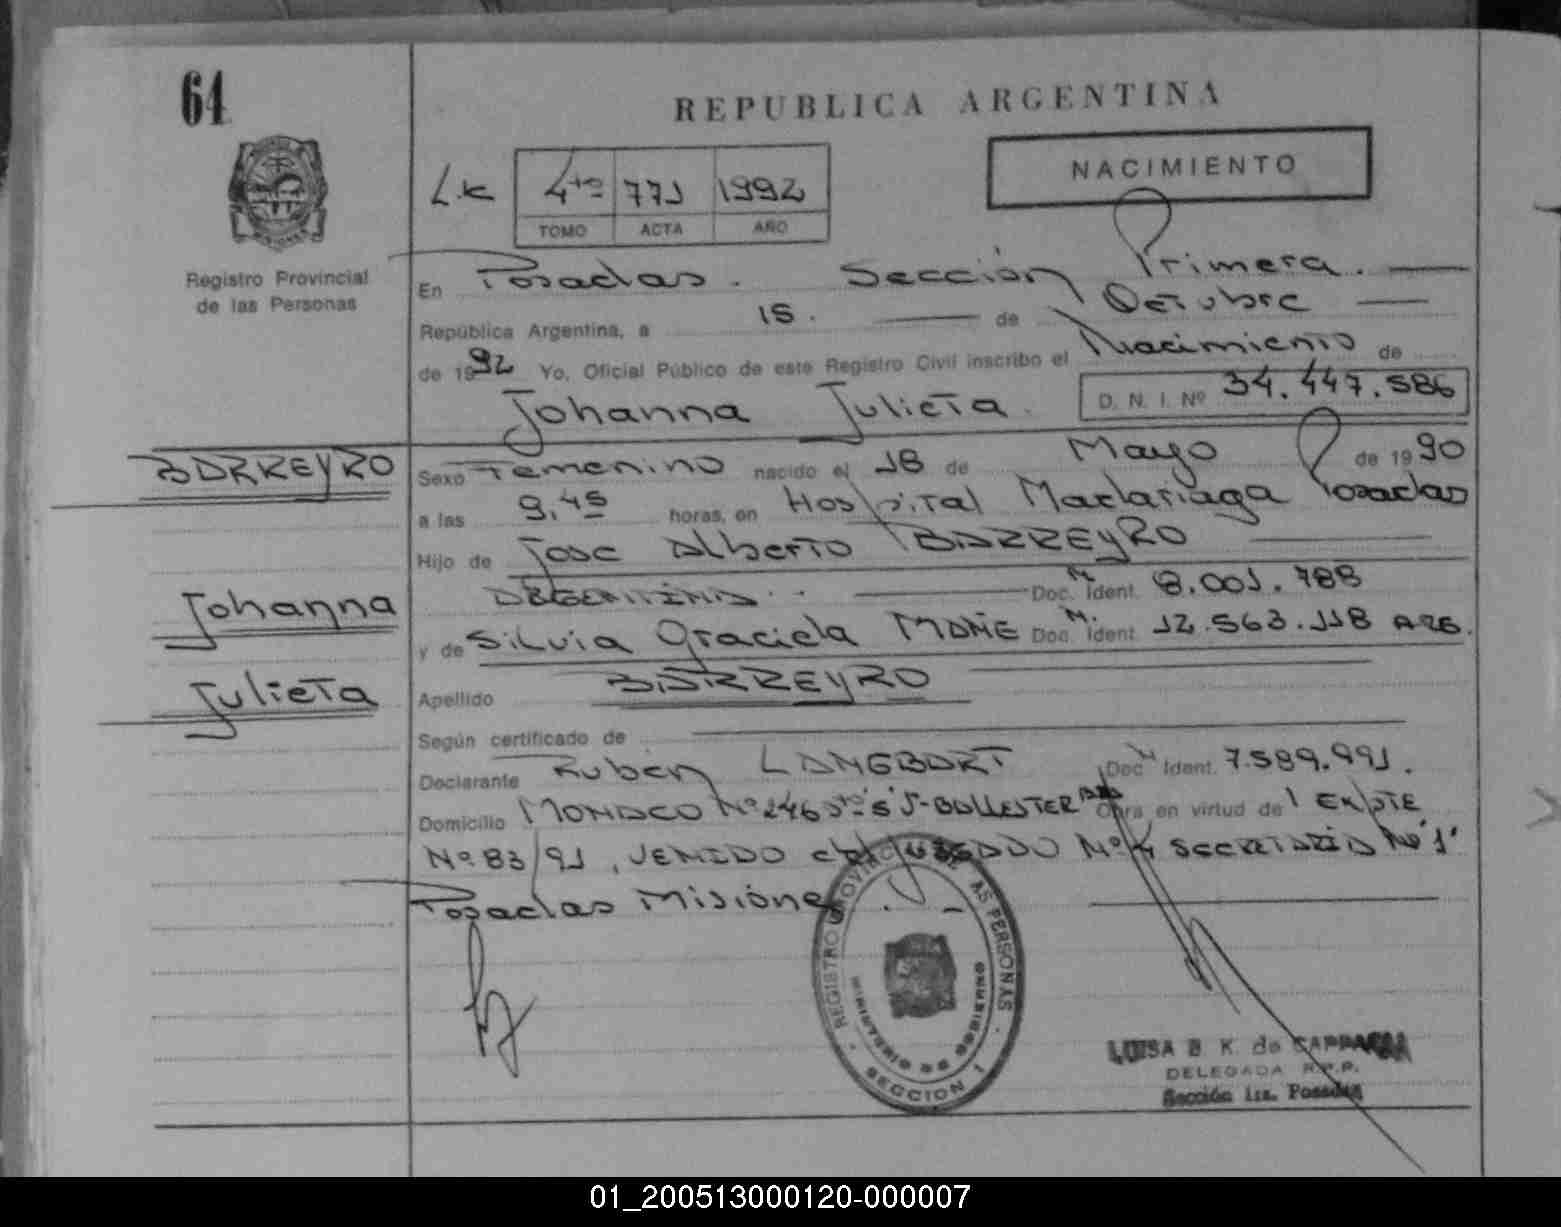 64
REPUBLICA ARGENTINA
NACIMIENTO
4to 771 1992
TOMO ACTA AÑO
Registro Provincial
de las Personas
En Posadas. Sección Primera.
República Argentina, a 15. de Octubre
de 1992 Yo, Oficial Público de este Registro Civil inscribo el Nacimiento de
Johanna Julieta D. N. I. Nº 34.447.586
BARREYRO
Sexo Femenino nacido el 18 de Mayo de 1990
a las 9,45 horas, en Hospital Madariaga Posadas
Hijo de Jose Alberto BARREYRO
Johanna
ARGENTINA Doc. Ident. 8.001.788
y de Silvia Graciela Doc. Ident. 12.563.118 ARG.
Julieta
Apellido BARREYRO
Según certificado de
Declarante Ruben LANGBART Doc. Ident. 7.589.991.
Domicilio MONACO Nº 246 BALLESTER Obra en virtud de
Nº 83/91, VENIDO JUZGADO Nº 4 SECRETARIA Nº "1"
Posadas Misiones
REGISTRO PROVINCIAL DE LAS PERSONAS
MINISTERIO DE GOBIERNO
SECCION 1
LUISA B. K. de
DELEGADA R.P.P.
Sección 1ra. Posadas
01_200513000120-000007